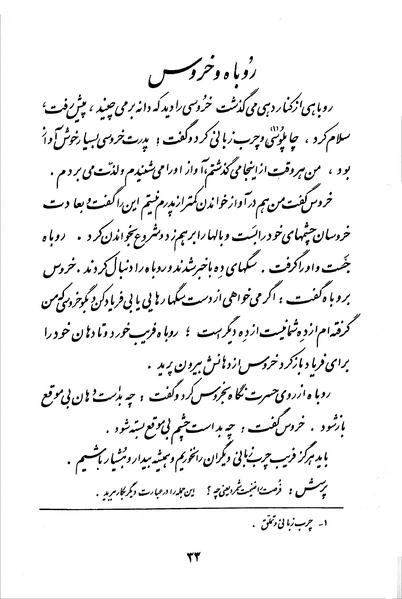 روباه و خروس
روباهی از کنار دهی می گذشت خروسی را دید که دانه برمی چیند ، پیش رفت،
سلام کرد ، چاپلوسی و چرب زبانی کرد و گفت : پدرت خروسی بسیار خوش آواز
بود ، من هر وقت از اینجا می گذشتم آواز او را می شنیدم و لذت می بردم .
خروس گفت من هم در آواز خواندن کمتر از پدرم نیستم این را گفت و بعادت
خروسان چشمهای خود را بست و بالها را بر هم زد و شروع بخواندن کرد . روباه
جست و او را گرفت . سگهای ده با خبر شدند و روباه را دنبال کردند . خروس
بروباه گفت : اگر می خواهی از دست سگها رهایی یابی فریاد کن و بگو خروسی که من
گرفته ام از ده شما نیست از ده دیگر است ؛ روباه فریب خورد و تا دهان خود را
برای فریاد باز کرد خروس از دهانش بیرون پرید .
روباه از روی حسرت نگاه بخروس کرد و گفت : چه بد است دهان بی موقع
باز شود . خروس گفت : چه بد است چشم بی موقع بسته شود .
باید هرگز فریب چرب زبانی دیگران را نخوریم و همیشه بیدار و هشیار باشیم .
پرسش : فرصت را غنیمت شمرد یعنی چه ؟ این جمله را در عبارت دیگر بکار برید .
۱- چرب زبانی و تملق .
۳۳